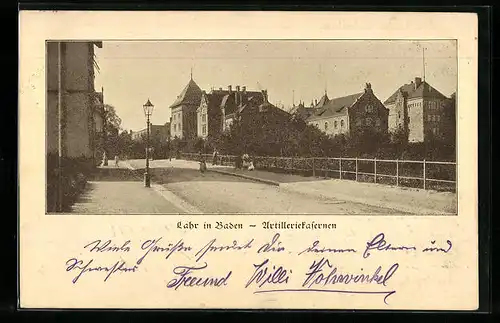 Lahr in Baden – Artilleriekasernen
Viele Grüße sendet Dir, deinen Eltern und
Schwester Freund Willi